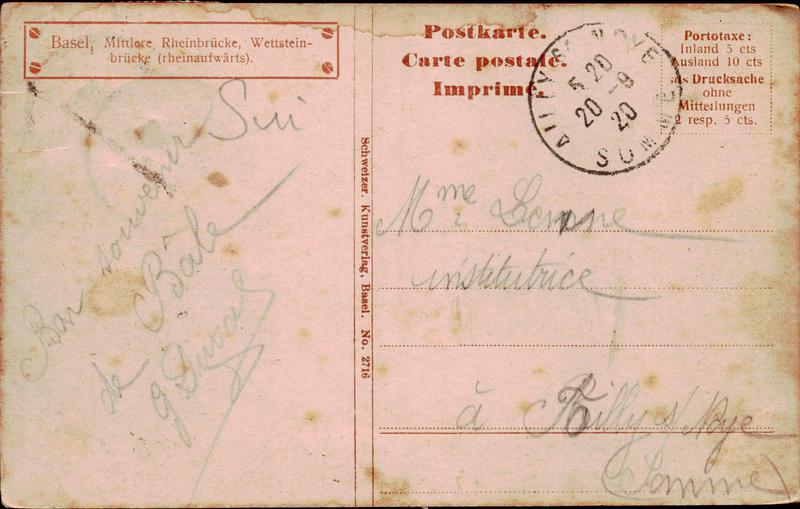 Basel, Mittlere Rheinbrücke, Wettstein-
brücke (rheinaufwärts).
Postkarte.
Carte postale.
Imprimé.
Portotaxe:
Inland 5 cts
Ausland 10 cts
als Drucksache
ohne
Mitteilungen
2 resp. 5 cts.
AILLY S. NOYE
5 20
20 - 9
20
SOMME
Bon souvenir
de Bâle
G Duval
Schweizer. Kunstverlag, Basel. No. 2716
Mme
institutrice
à Ailly s/ Noye
(Somme)